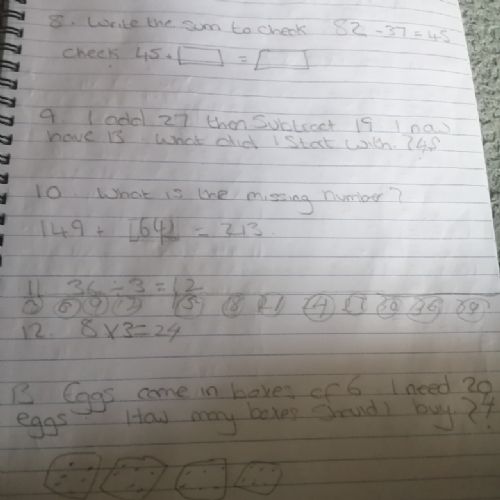 8. Write the sum to check 82 - 37 = 45
check 45 + =
9 I add 27 then subtract 19. I now
have 13 What did I start with?
10 What is the missing number?
149 + 64 = 213
11 36 ÷ 3 = 12
3 6 9 12 15 18 21
12. 8 x 3 = 24
13 Eggs come in boxes of 6 I need 20
eggs. How many boxes should I buy?